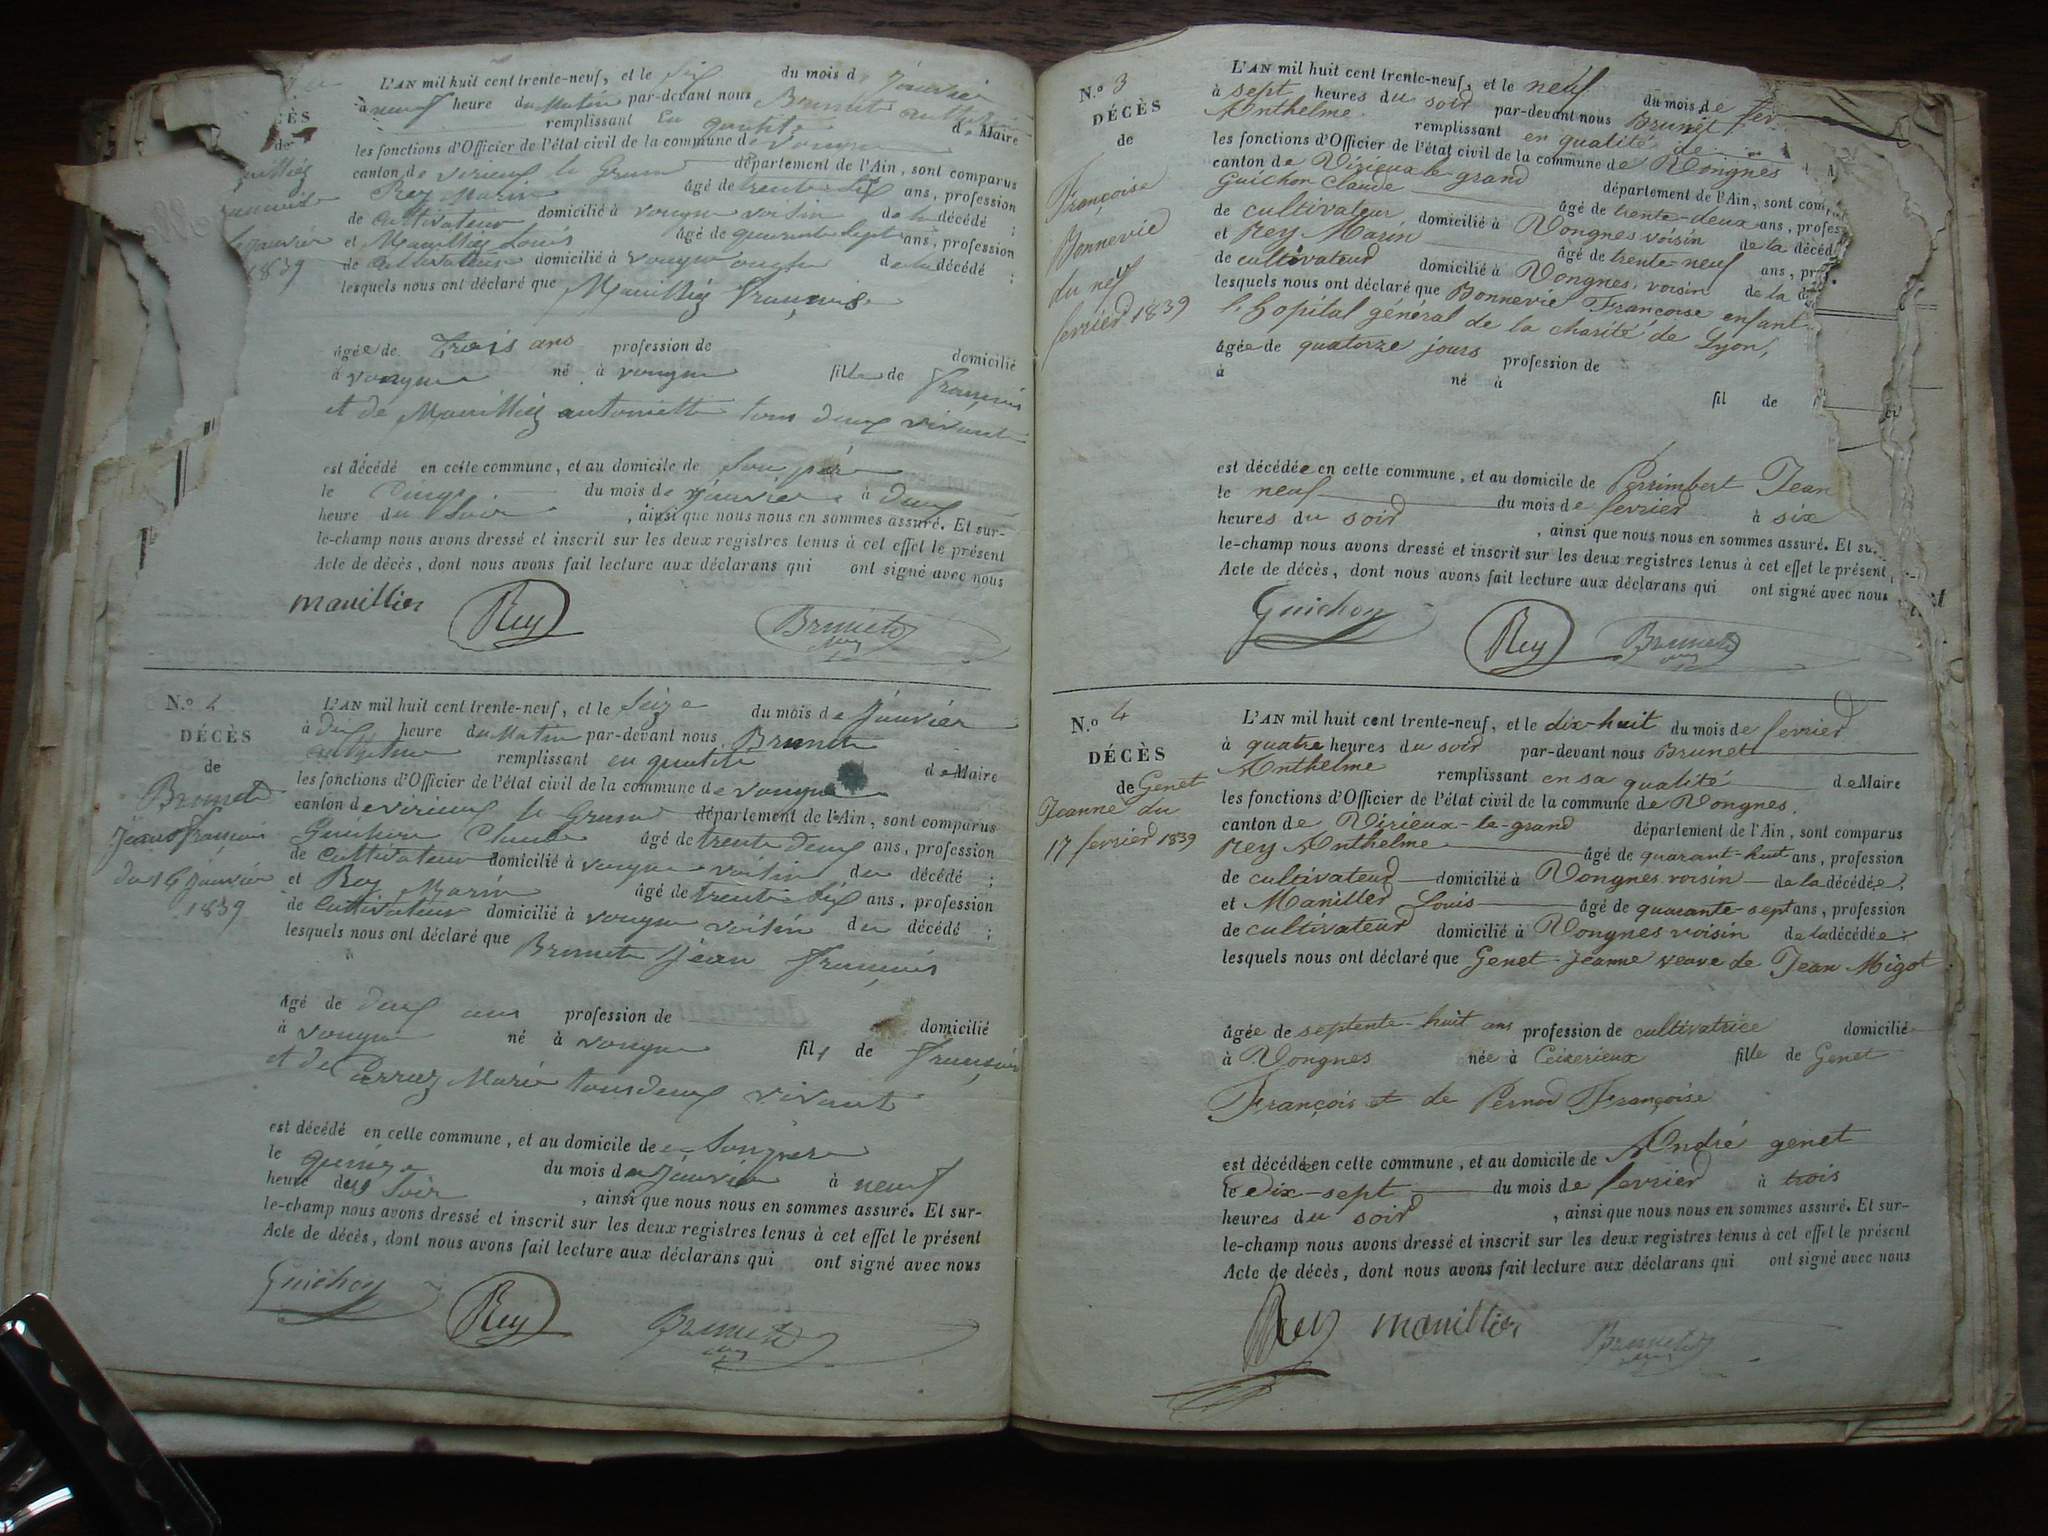 L'AN mil huit cent trente-neuf, et le six du mois de Janvier
à neuf heure du Matin par-devant nous Brunet
remplissant en qualité de Maire
les fonctions d'Officier de l'état civil de la commune de
canton de virieux le Grand département de l'Ain, sont comparus
Rey Marin âgé de trente six ans, profession
de Cultivateur domicilié à voisin de la décédé ;
et Manillier Louis âgé de quarante sept ans, profession
de Cultivateur domicilié à de la décédé ;
lesquels nous ont déclaré que Manillier
âgée de trois ans profession de domicilié
à né à fille de
et de antoinette tous deux vivant
est décédé en cette commune, et au domicile de Son père
le Cinq du mois de Janvier à deux
heure du Soir , ainsi que nous nous en sommes assuré. Et sur-
le-champ nous avons dressé et inscrit sur les deux registres tenus à cet effet le présent
Acte de décès, dont nous avons fait lecture aux déclarans qui ont signé avec nous
manillier Rey Brunet
CÈS
de
Janvier
1839
N.º
DÉCÈS
de
Brunet
Jean François
du 16 Janvier
1839
L'AN mil huit cent trente-neuf, et le Seize du mois de Janvier
à dix heure du Matin par-devant nous Brunet
remplissant en qualité de Maire
les fonctions d'Officier de l'état civil de la commune de
canton de virieux le Grand département de l'Ain, sont comparus
Claude âgé de trente deux ans, profession
de Cultivateur domicilié à voisin du décédé ;
et Rey Marin âgé de trente six ans, profession
de Cultivateur domicilié à voisin du décédé ;
lesquels nous ont déclaré que Brunet Jean François
âgé de deux ans profession de domicilié
à né à fils de François
et de Marie tous deux vivant
est décédé en cette commune, et au domicile de Son père
le quinze du mois de Janvier à neuf
heure du Soir , ainsi que nous nous en sommes assuré. Et sur-
le-champ nous avons dressé et inscrit sur les deux registres tenus à cet effet le présent
Acte de décès, dont nous avons fait lecture aux déclarans qui ont signé avec nous
Guichon Rey Brunet
N.º 3
DÉCÈS
de
Françoise
Bonnevie
du neuf
fevrier 1839
L'AN mil huit cent trente-neuf, et le neuf du mois de fev
à sept heures du soir par-devant nous Brunet
Anthelme remplissant en qualité de
les fonctions d'Officier de l'état civil de la commune de Vongnes
canton de Virieux-le-grand département de l'Ain, sont comp
Guichon Claude âgé de trente-deux ans, profes
de cultivateur domicilié à Vongnes voisin de la décéd
et Rey Marin âgé de trente-neuf ans, pr
de cultivateur domicilié à Vongnes, voisin de la d
lesquels nous ont déclaré que Bonnevie Françoise enfant
l'hopital général de la charité de Lyon,
âgée de quatorze jours profession de
à né à fil de
est décédée en cette commune, et au domicile de Perrimbert Jean
le neuf du mois de fevrier à six
heures du soir , ainsi que nous nous en sommes assuré. Et su
le-champ nous avons dressé et inscrit sur les deux registres tenus à cet effet le présent
Acte de décès, dont nous avons fait lecture aux déclarans qui ont signé avec nous
Guichon Rey Brunet
N.º 4
DÉCÈS
de Genet
Jeanne du
17 fevrier 1839
L'AN mil huit cent trente-neuf, et le dix-huit du mois de fevrier
à quatre heures du soir par-devant nous Brunet
Anthelme remplissant en sa qualité de Maire
les fonctions d'Officier de l'état civil de la commune de Vongnes,
canton de Virieux-le-grand département de l'Ain, sont comparus
Rey Anthelme âgé de quarant-huit ans, profession
de cultivateur domicilié à Vongnes voisin de la décédée ;
et Manillier Louis âgé de quarante-sept ans, profession
de cultivateur domicilié à Vongnes voisin de la décédée ;
lesquels nous ont déclaré que Genet Jeanne veuve de Jean Migot
âgée de septente-huit ans profession de cultivatrice domicilié
à Vongnes née à Ceizerieux fille de Genet
François et de Pernod Françoise
est décédée en cette commune, et au domicile de André genet
le dix-sept du mois de fevrier à trois
heures du soir , ainsi que nous nous en sommes assuré. Et sur-
le-champ nous avons dressé et inscrit sur les deux registres tenus à cet effet le présent
Acte de décès, dont nous avons fait lecture aux déclarans qui ont signé avec nous
Rey manillier Brunet